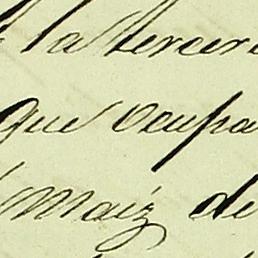 la tercer
que Ocupa
Maiz de